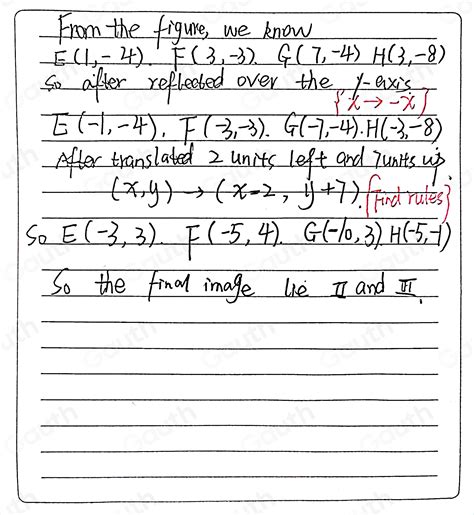 From the figure, we know
E(1,-4). F(3,-3). G(7,-4) H(3,-8)
So after reflected over the y-axis
{x→-x}
E(-1,-4). F(-3,-3). G(-7,-4). H(-3,-8)
After translated 2 units left and 7 units up.
(x,y) → (x-2, y+7). {Find rules}
So E(-3,3). F(-5,4). G(-10,3) H(-5,-1)
So the final image lie II and III.